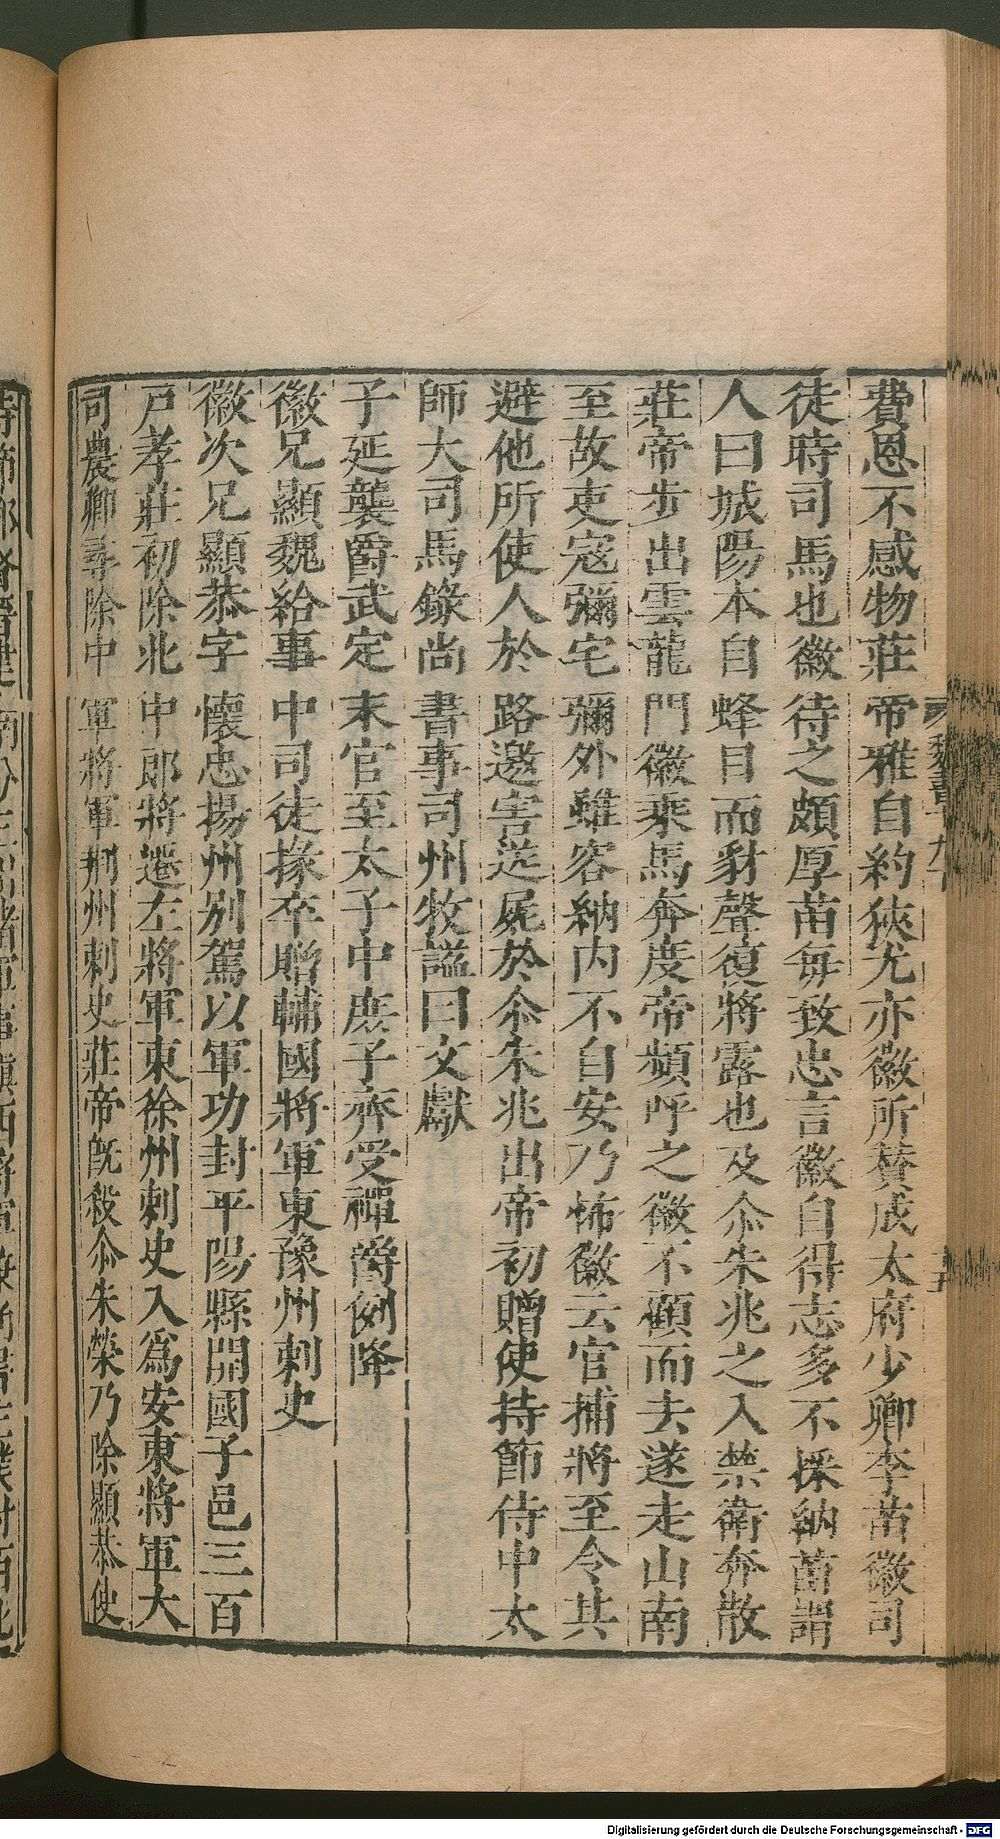 費恩不感物莊帝雅自約狹尤亦徽所贊成太府少卿李苗徽司
徒時司馬也徽待之頗厚苗每致忠言徽自得志多不採納苗謂
人曰城陽本自蜂目而豺聲復將露也及尒朱兆之入禁衛奔散
莊帝步出雲龍門徽乘馬奔度帝頻呼之徽不顧而去遂走山南
至故吏寇彌宅彌外雖容納內不自安乃怖徽云官捕將至令其
避他所使人於路邀害送屍於尒朱兆出帝初贈使持節侍中太
師大司馬錄尚書事司州牧諡曰文獻
子延襲爵武定末官至太子中庶子齊受禪爵例降
徽兄顯魏給事中司徒掾卒贈輔國將軍東豫州刺史
徽次兄顯恭字懷忠揚州別駕以軍功封平陽縣開國子邑三百
戸孝莊初除北中郎將遷左將軍東徐州刺史入爲安東將軍大
司農卿尋除中軍將軍荊州刺史莊帝既殺尒朱榮乃除顯恭使
Digitalisierung gefördert durch die Deutsche Forschungsgemeinschaft - DFG